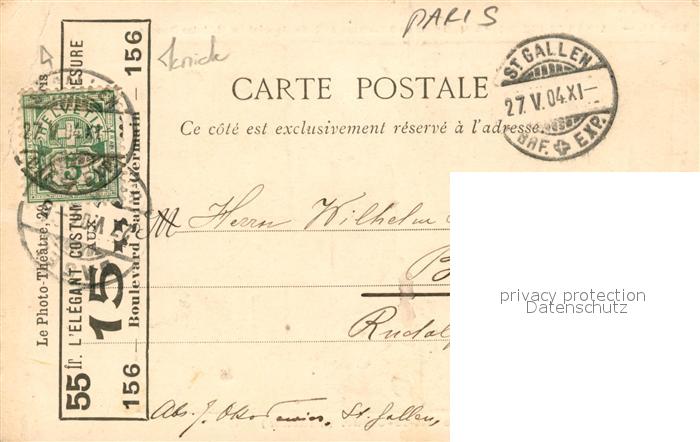 PARIS
CARTE POSTALE
Ce côté est exclusivement réservé à l'adresse.
ST GALLEN
27.V.04.XI-
BRF. EXP.
Le Photo-Théâtre, Paris
55 fr. L'ÉLÉGANT COSTUM MESURE
AUX
15
156 — Boulevard Saint-Germain — 156
27.V.04.XI
5
M Herrn Wilhelm
B
Rudolf
Abs. J. St. Gallen,
privacy protection
Datenschutz